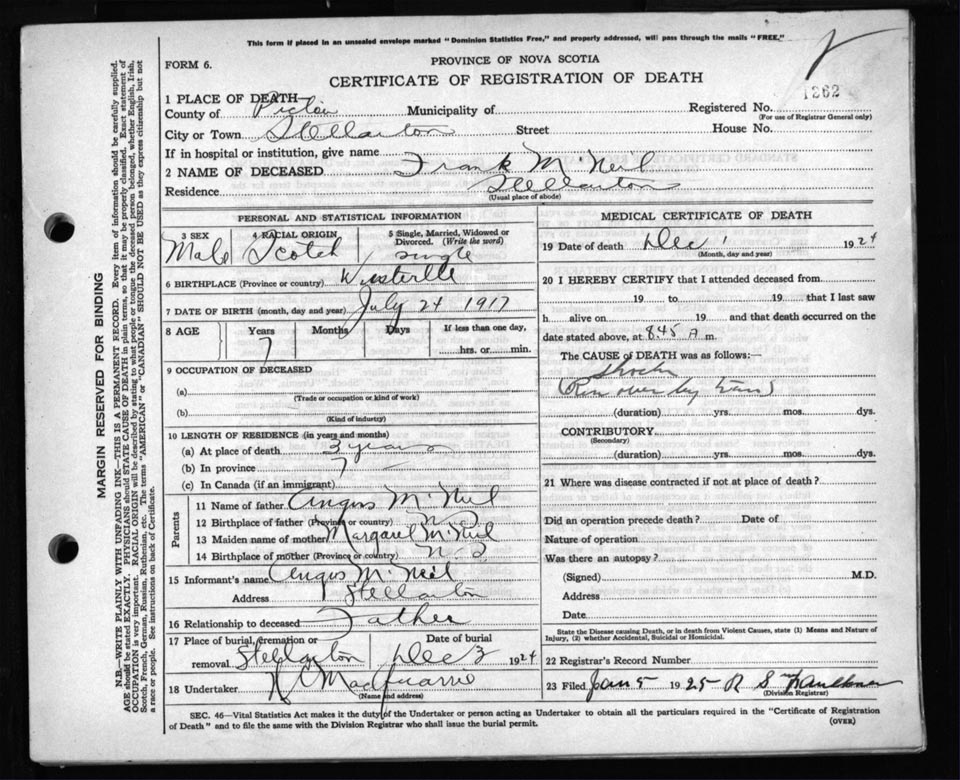 This form if placed in an unsealed envelope marked "Dominion Statistics Free," and properly addressed, will pass through the mails "FREE."
FORM 6.
PROVINCE OF NOVA SCOTIA
CERTIFICATE OF REGISTRATION OF DEATH
1262
1 PLACE OF DEATH—
County of Pictou Municipality of Registered No.
(For use of Registrar General only)
City or Town Stellarton Street House No.
If in hospital or institution, give name
2 NAME OF DECEASED Frank McNeil
Residence Stellarton
(Usual place of abode)
MARGIN RESERVED FOR BINDING
N.B.—WRITE PLAINLY WITH UNFADING INK—THIS IS A PERMANENT RECORD. Every item of information should be carefully supplied.
AGE should be stated EXACTLY. PHYSICIANS should STATE CAUSE OF DEATH in plain terms, so that it may be properly classified. Exact statement of
OCCUPATION is very important. RACIAL ORIGIN will be described by stating to what people or tongue the deceased person belonged, whether English, Irish,
Scotch, French, German, Russian, Ruthenian, etc. The terms "AMERICAN" or "CANADIAN" SHOULD NOT BE USED as they express citizenship but not
a race or people. See instructions on back of Certificate.
PERSONAL AND STATISTICAL INFORMATION
3 SEX 4 RACIAL ORIGIN 5 Single, Married, Widowed or
Divorced. (Write the word)
Male Scotch Single
6 BIRTHPLACE (Province or country) Westville
7 DATE OF BIRTH (month, day and year) July 24 1917
8 AGE Years Months Days If less than one day,
7 hrs. or min.
9 OCCUPATION OF DECEASED
(a)
(Trade or occupation or kind of work)
(b)
(Kind of industry)
10 LENGTH OF RESIDENCE (in years and months)
(a) At place of death 3 years
(b) In province 7
(c) In Canada (if an immigrant)
Parents
11 Name of father Angus McNeil
12 Birthplace of father (Province or country)
13 Maiden name of mother Margaret McNeil
14 Birthplace of mother (Province or country) N.S
15 Informant's name Angus McNeil
Address Stellarton
16 Relationship to deceased Father
17 Place of burial, cremation or Date of burial
removal Stellarton Dec 3 1924
18 Undertaker MacQuarrie
(Name and address)
MEDICAL CERTIFICATE OF DEATH
19 Date of death Dec 1 1924
(Month, day and year)
20 I HEREBY CERTIFY that I attended deceased from
19 to 19 that I last saw
h alive on 19 and that death occurred on
date stated above, at 845 A m.
The CAUSE OF DEATH was as follows:—
Shock
(Run over by train)
(duration) yrs. mos. dys.
CONTRIBUTORY
(Secondary)
(duration) yrs. mos. dys.
21 Where was disease contracted if not at place of death?
Did an operation precede death? Date of
Nature of operation
Was there an autopsy?
(Signed) M.D.
Address
Date
State the Disease causing Death, or in death from Violent Causes, state (1) Means and Nature of
Injury, (2) whether Accidental, Suicidal or Homicidal.
22 Registrar's Record Number
23 Filed Jan 5 1925 R S
(Division Registrar)
SEC. 46—Vital Statistics Act makes it the duty of the Undertaker or person acting as Undertaker to obtain all the particulars required in the "Certificate of Registration
of Death" and to file the same with the Division Registrar who shall issue the burial permit.
(OVER)